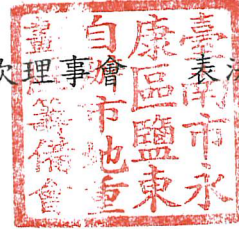 次理事會 表
臺南市永
康區鹽東
自辦市地重
劃籌備會